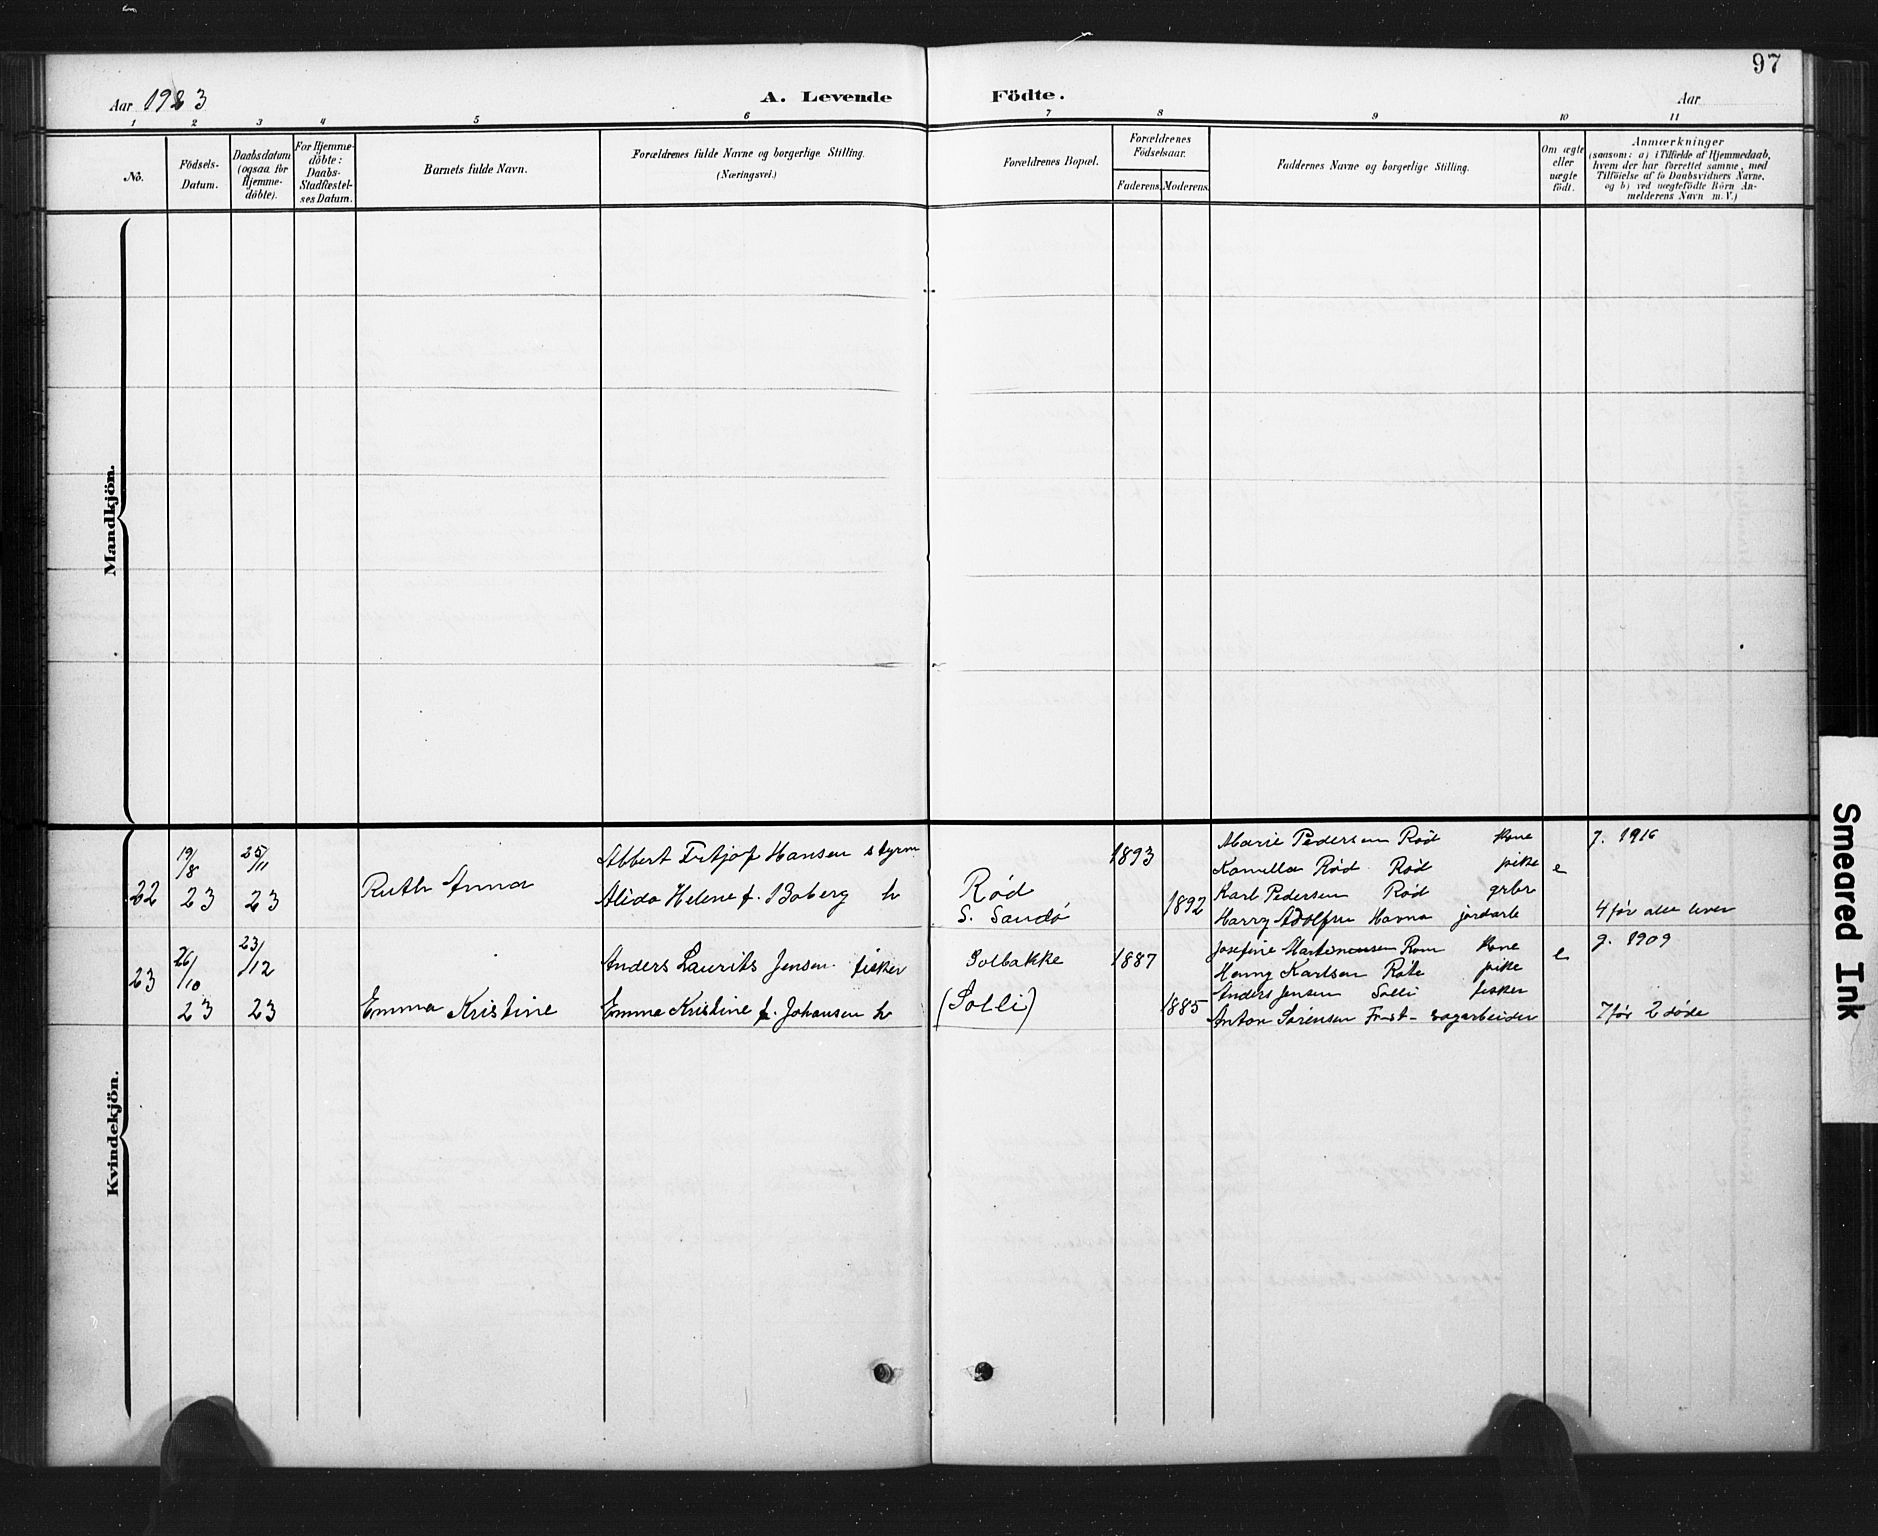 97
Aar 1923
A. Levende
Födte.
Aar
1 2 3 4 5 6 7 8 9 10 11
No.
Födsels-
Datum.
Daabsdatum
(ogsaa for
Hjemme-
döbte).
For Hjemme-
döbte:
Daabs-
Stadfæstel-
ses Datum.
Barnets fulde Navn.
Forældrenes fulde Navne og borgerlige Stilling.
(Næringsvei.)
Forældrenes Bopæl.
Forældrenes
Födselsaar.
Faderens.
Moderens.
Faddernes Navne og borgerlige Stilling.
Om ægte
eller
uægte
födt.
Anmærkninger
(saasom: a) i Tilfælde af Hjemmedaab,
hvem der har forrettet samme, med
Tilföielse af to Daabsvidners Navne,
og b) ved uægtefödte Börn An-
melderens Navn m. V.)
Mandkjön.
Kvindekjön.
22
19/8
23
25/11
23
Ruth Anna
Abbert Fritjof Hansen styrm
Alida Helene f. Boberg h
Rød
S. Sandø
1893
1892
Marie Pedersen Rød kone
Kamilla Rød Rød pike
Karl Pedersen Rød grbr
Harry Adolfsen Havna jordarb
e
g. 1916
4 før alle lever
23
26/10
23
23/12
23
Emma Kristine
Anders Laurits Jensen fisker
Emma Kristine f. Johansen h
Solbakke
(Solli)
1887
1885
Josefine Martinussen Rom kone
Henny Karlsen Røte pike
Anders Jensen Solli fisker
Anton Sørensen sagarbeider
e
g. 1909
7 før 2 døde
Smeared Ink